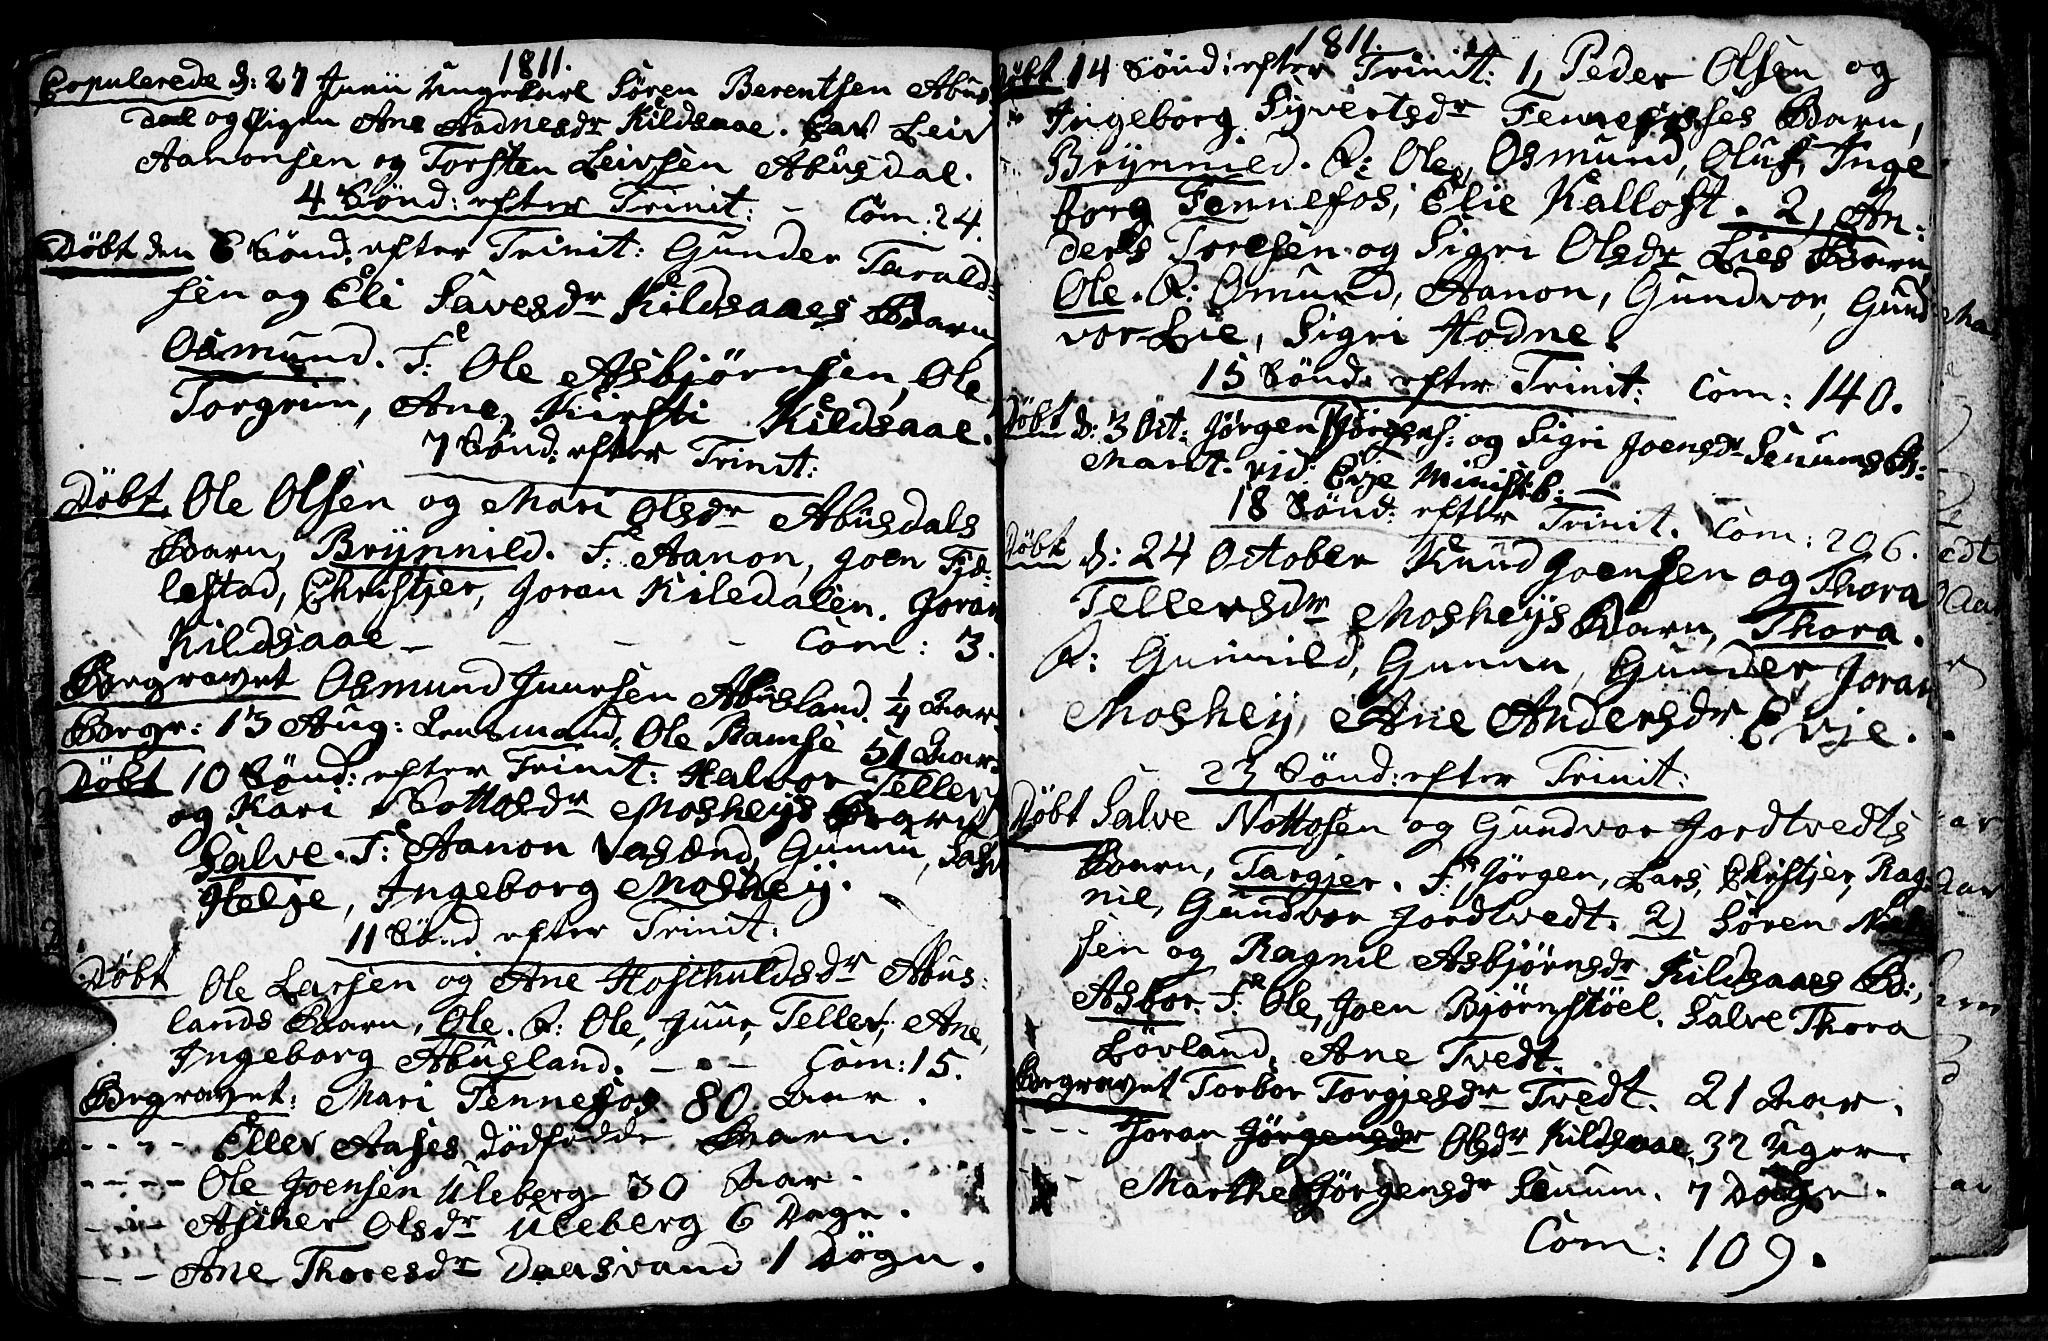 1811.
Copulerede d: 27 Junii Ungekarl Søren Berentsen Abus
dal og Pigen Ane Aadnesdr Kildsaae. Cav Leiv
Aanonsen og Torsten Leivsen Abusdal.
4 Sønd: efter Trinit: - Com: 24.
Døbt den 6 Sønd: efter Trinit: Gunder Tarald-
sen og Eli Savesdr Kildsaaes Barn
Osmund. F: Ole Asbjørnsen, Ole
Torgrim, Ane, Kirsti Kildsaae.
7 Sønd: efter Trinit:
Døbt. Ole Olsen og Mari Olsdr Abusdals
Barn, Brynnild. F: Aanon, Joen Fjø-
lestad, Christjer, Joran Kiledalen. Joran
Kildsaae - - - - Com: 3.
Begravet Osmund Juursen Abusland. 1/4 Aar
Begr: 13 Aug: Lensmand, Ole Ramse 51 Aar.
Døbt 10 Sønd: efter Trinit: Halvor Tellefs
og Kari Nottosdr Mosheys Barn
Salve. F: Aanon Vasend, Gunnu, Salve
Helje, Ingeborg Moshey.
11 Sønd efter Trinit:
Døbt Ole Larsen og Ane Hoskuldsdr Abus-
lands Barn, Ole. F: Ole, Juur, Tellef, Ane,
Ingeborg Abusland. - - - Com: 15.
Begravet: Mari Fennefos 80 Aar.
- - - - Ellev Aases dødfødde Barn.
- - - - Ole Joensen Uleberg 30 Aar.
- - - Asiher Olsdr Uleberg 6 Dage.
- - - Ane Thoresdr Daasvand 1 Døgn.
1811.
Døbt 14 Sønd: efter Trinit: 1, Peder Olsen og
Ingeborg Syvertsdr Fennefosses Barn,
Brynnild. F: Ole, Osmund, Oluf, Inge
borg Fennefos, Elie Kalloft. 2, An-
ders Toresen og Sigri Olsdr Lies Barn,
Ole. F: Osmund, Aanon, Gundvor, Gund
vor Lie, Sigri Hodne.
15 Sønd: efter Trinit: Com: 140.
Døbt d: 3 Oct: Jørgen Jørgens: og Sigri Joensdr Senums B:
Mart. vid: Evje Ministb: -
18 Sønd: efter Trinit. Com: 206.
Døbt d: 24 October Knud Joensen og Thora
Tellefsdr Mosheys Barn, Thora.
F: Gunnild, Gunnu, Gunder, Joran
Moshey, Ane Andersdr Evje.
23 Sønd: efter Trinit:
Døbt Salve Nottosen og Gundvor Jordtvedts
Barn, Targjer. F: Jørgen, Lars, Christjer, Rag-
nil, Gundvor Jordtvedt. 2) Søren
sen og Ragnil Asbjørnsdr Kildsaaes B:,
Asbor. F: Ole, Joen Bjørnstøel. Salve Thora
Lövland, Ane Tvedt.
Begravet Torbor Torgjesdr Tvedt. 21 Aar.
- - - Joran Olsdr Kildsaae. 32 Uger.
- Marthe Jørgensdr Senum. 7 Dage.
Com: 109.